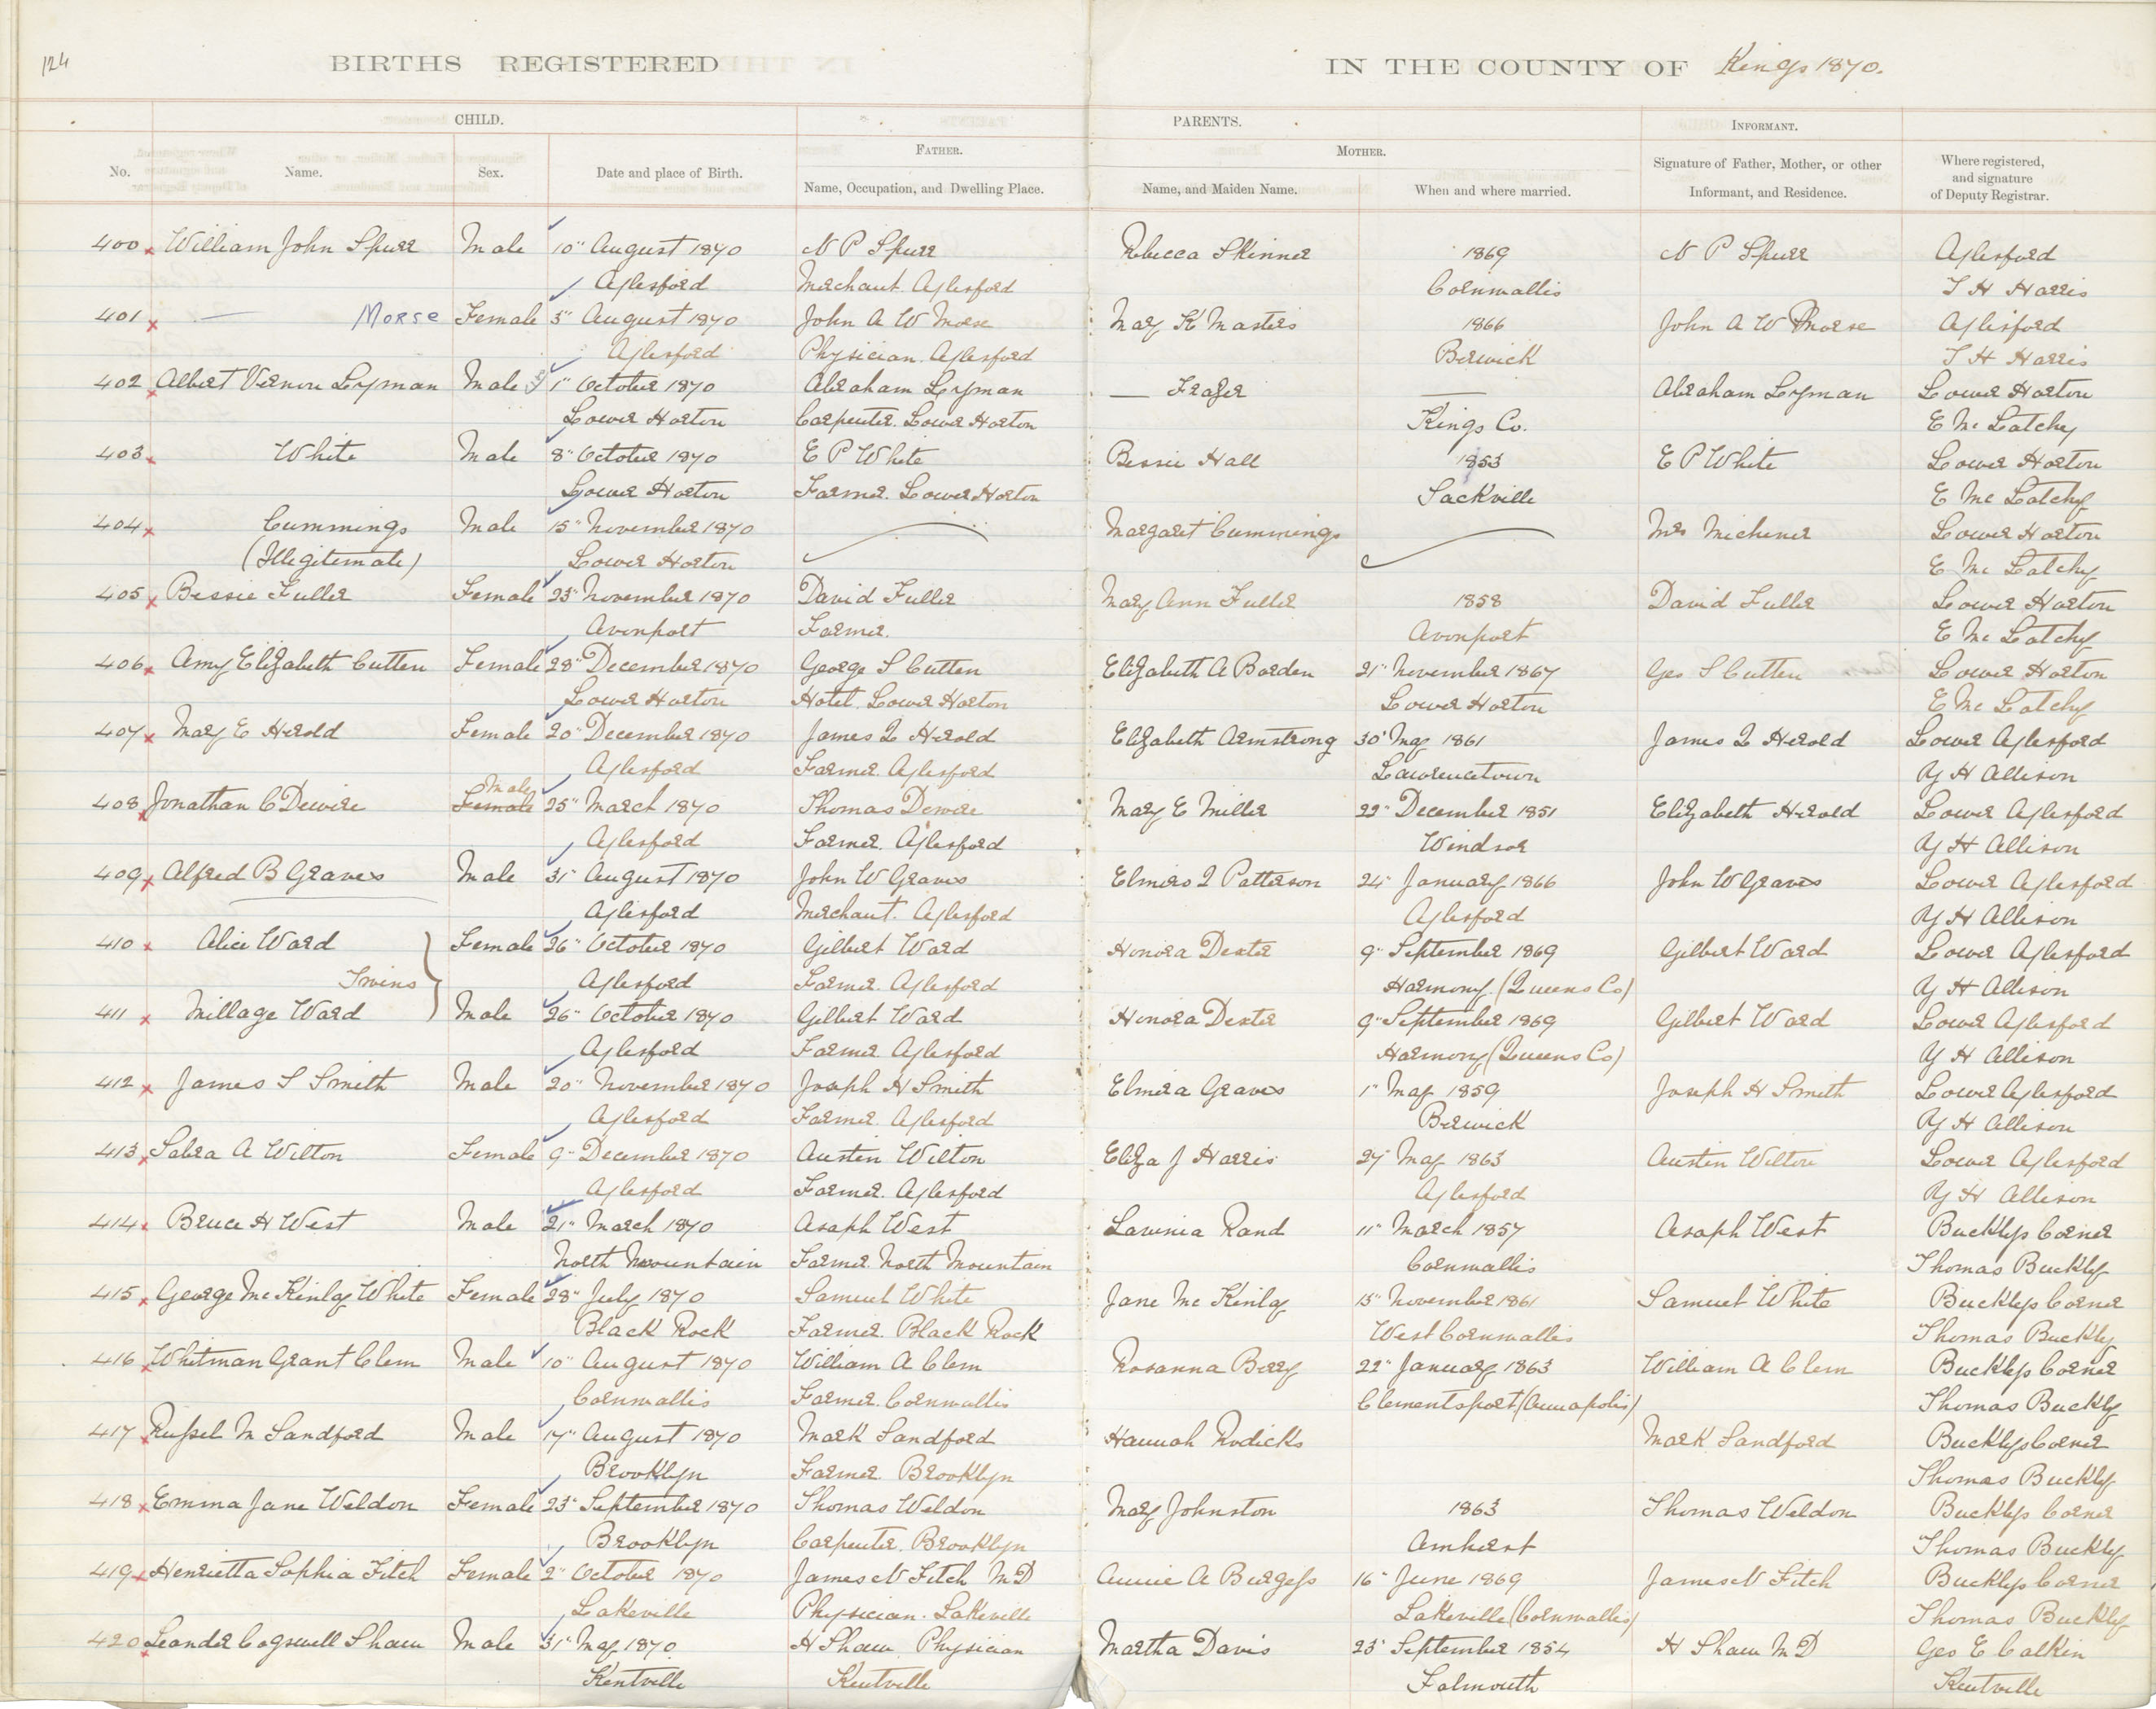 124
BIRTHS REGISTERED IN THE COUNTY OF Kings 1870.
CHILD. PARENTS. INFORMANT.
FATHER. MOTHER.
No. Name. Sex. Date and place of Birth. Name, Occupation, and Dwelling Place. Name, and Maiden Name. When and where married. Signature of Father, Mother, or other Informant, and Residence. Where registered, and signature of Deputy Registrar.
400 William John Spurr Male 10" August 1870 N P Spurr Rebecca Skinner 1869 N P Spurr Aylesford
Aylesford Merchant. Aylesford Cornwallis T H Harris
401 — Morse Female 5" August 1870 John A W Morse Mary K Masters 1866 John A W Morse Aylesford
Aylesford Physician. Aylesford Berwick T H Harris
402 Albert Vernon Lyman Male 1" October 1870 Abraham Lyman — Frazer — Abraham Lyman Lower Horton
Lower Horton Carpenter. Lower Horton Kings Co. E Mc Latchy
403 White Male 8" October 1870 E P White Bessie Hall 1853 E P White Lower Horton
Lower Horton Farmer. Lower Horton Sackville E Mc Latchy
404 Cummings Male 15" November 1870 Margaret Cummings Mrs Michener Lower Horton
(Illegitemate) Lower Horton E Mc Latchy
405 Bessie Fuller Female 23" November 1870 David Fuller Mary Ann Fuller 1858 David Fuller Lower Horton
Avonport Farmer. Avonport E Mc Latchy
406 Amy Elizabeth Cutten Female 28" December 1870 George S Cutten Elizabeth A Borden 21" November 1867 Geo S Cutten Lower Horton
Lower Horton Hotel. Lower Horton Lower Horton E Mc Latchy
407 Mary E Herold Female 20" December 1870 James Q Herold Elizabeth Armstrong 30" May 1861 James Q Herold Lower Aylesford
Aylesford Farmer. Aylesford Lawrencetown Y H Allison
408 Jonathan C Dewire Female Male 25" March 1870 Thomas Dewire Mary E Miller 22" December 1851 Elizabeth Herold Lower Aylesford
Aylesford Farmer. Aylesford Windsor Y H Allison
409 Alfred B Graves Male 31" August 1870 John W Graves Elmira Q Patterson 24" January 1866 John W Graves Lower Aylesford
Aylesford Merchant. Aylesford Aylesford Y H Allison
410 Alice Ward Female 26" October 1870 Gilbert Ward Honora Dexter 9" September 1869 Gilbert Ward Lower Aylesford
Twins Aylesford Farmer. Aylesford Harmony. (Queens Co) Y H Allison
411 Millage Ward Male 26" October 1870 Gilbert Ward Honora Dexter 9" September 1869 Gilbert Ward Lower Aylesford
Aylesford Farmer. Aylesford Harmony (Queens Co) Y H Allison
412 James S Smith Male 20" November 1870 Joseph H Smith Elmira Graves 1" May 1859 Joseph H Smith Lower Aylesford
Aylesford Farmer. Aylesford Berwick Y H Allison
413 Sabra A Wilton Female 9" December 1870 Austin Wilton Eliza J Harris 27" May 1863 Austin Wilton Lower Aylesford
Aylesford Farmer. Aylesford Aylesford Y H Allison
414 Bruce H West Male 21" March 1870 Asaph West Lavinia Rand 11" March 1857 Asaph West Bucklys Corner
North Mountain Farmer. North Mountain Cornwallis Thomas Buckly
415 George Mc Kinly White Female 28" July 1870 Samuel White Jane Mc Kinly 15" November 1861 Samuel White Bucklys Corner
Black Rock Farmer. Black Rock West Cornwallis Thomas Buckly
416 Whitman Grant Clem Male 10" August 1870 William A Clem Rosanna Berry 22" January 1863 William A Clem Bucklys Corner
Cornwallis Farmer. Cornwallis Clementsport (Annapolis) Thomas Buckly
417 Russel M Sandford Male 17" August 1870 Mark Sandford Hannah Rodicks Mark Sandford Bucklys Corner
Brooklyn Farmer. Brooklyn Thomas Buckly
418 Emma Jane Weldon Female 23" September 1870 Thomas Weldon Mary Johnston 1863 Thomas Weldon Bucklys Corner
Brooklyn Carpenter. Brooklyn Amherst Thomas Buckly
419 Henrietta Sophia Fitch Female 2" October 1870 James N Fitch M D Annie A Burgess 16" June 1869 James N Fitch Bucklys Corner
Lakeville Physician. Lakeville Lakeville (Cornwallis) Thomas Buckly
420 Leander Cogswell Shaw Male 31" May 1870. H Shaw Physician Martha Davis 23" September 1854 H Shaw M D Geo E Calkin
Kentville Kentville Falmouth Kentville